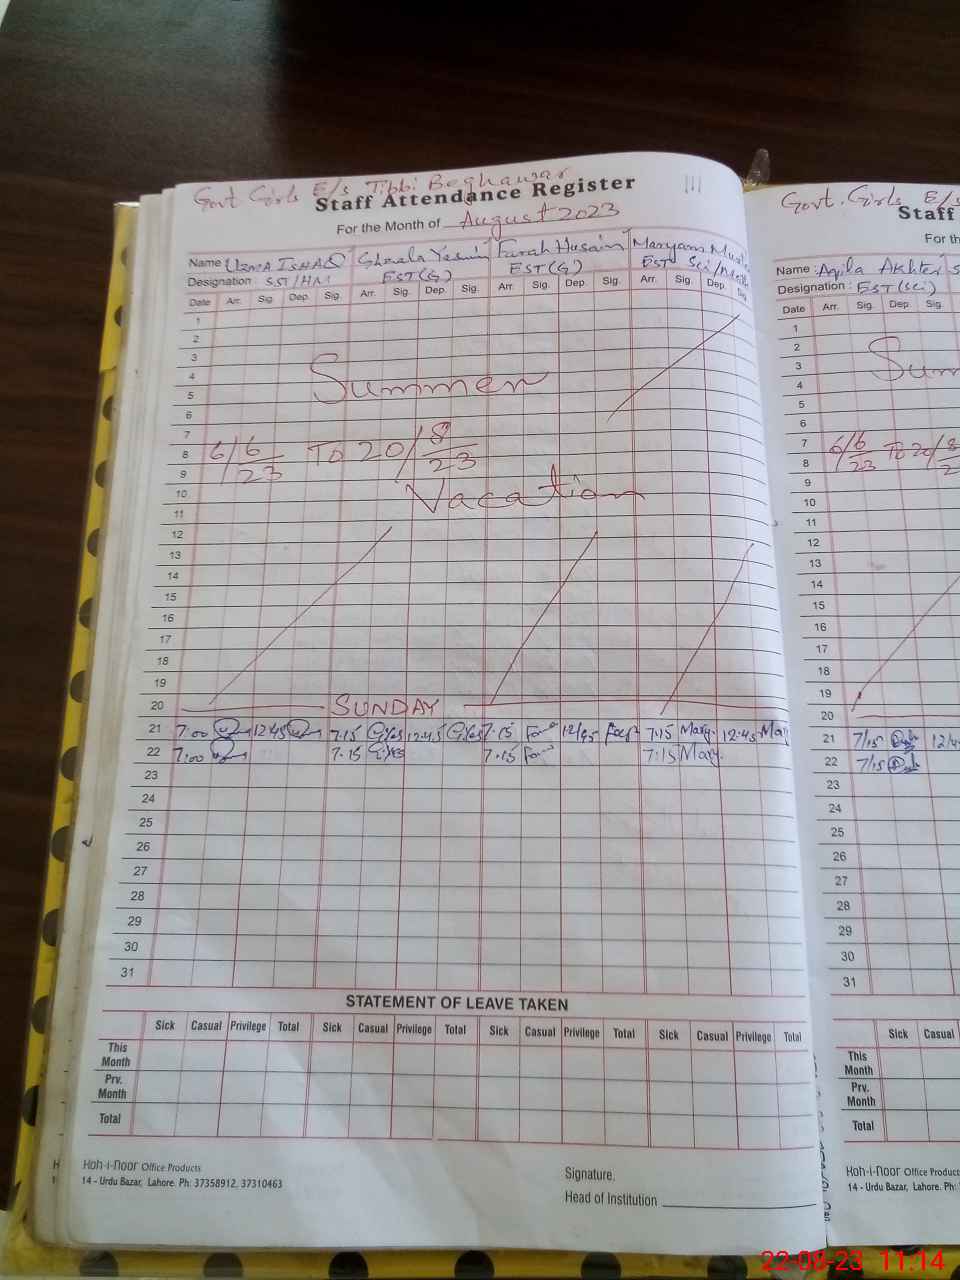 Govt Girls E/s Tibbi Beghawar
Staff Attendance Register
For the Month of August 2023
Name Uzma ISHAQ Ghazala Yasmin Farah Husain Maryam
Designation : SST/HM EST(G) EST(G) EST Sci/Math
Date Arr. Sig. Dep. Sig. Arr. Sig. Dep. Sig. Arr. Sig. Dep. Sig. Arr. Sig. Dep. Sig.
1
2
3
4
5
Summer
6
7
8
9
6/6/23 To 20/8/23
10
Vacation
11
12
13
14
15
16
17
18
19
20 SUNDAY
21 7:00 12:45 7.15 12:45 7.15 12/45 7.15 Mary. 12:45 Mary
22 7:00 7.15 7.15 7:15 Mary.
23
24
25
26
27
28
29
30
31
STATEMENT OF LEAVE TAKEN
Sick Casual Privilege Total Sick Casual Privilege Total Sick Casual Privilege Total Sick Casual Privilege Total
This Month
Prv. Month
Total
Koh-i-Noor Office Products
14 - Urdu Bazar, Lahore. Ph: 37358912, 37310463
Signature.
Head of Institution
Govt. Girls E/s
Staff
For th
Name : Aqila Akhter S
Designation : EST(Sci)
Date Arr. Sig. Dep. Sig.
1
2
3
Sum
4
5
6
7
8
6/6/23 To 20/8/2
9
10
11
12
13
14
15
16
17
18
19
20
21 7/15 12/4
22 7/15
23
24
25
26
27
28
29
30
31
Sick Casual
This Month
Prv. Month
Total
Koh-i-Noor Office Product
14 - Urdu Bazar, Lahore. Ph:
22-08-23 11:14